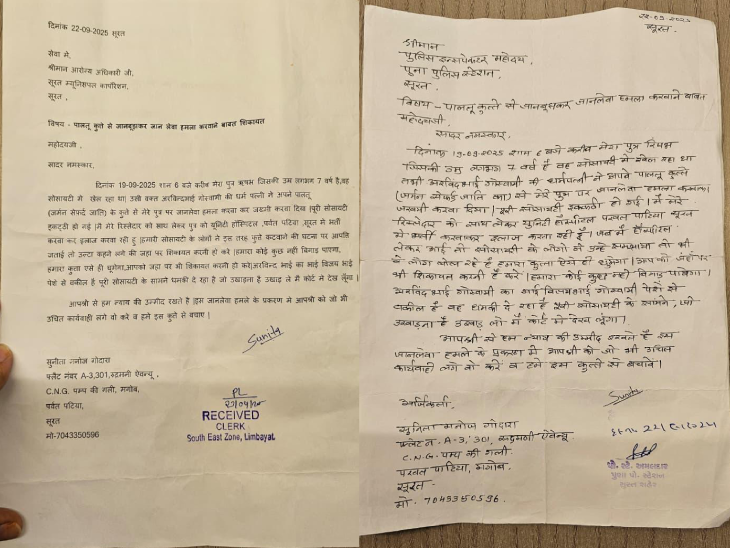 दिनांक 22-09-2025 सूरत
सेवा मे,
श्रीमान आरोग्य अधिकारी जी,
सूरत म्युनिसिपल कार्पोरेशन,
सूरत ,
विषय - पालतू कुत्ते से जानबुझकर जान लेवा हमला करवाने बाबत शिकायत
महोदयजी ,
सादर नमस्कार,
दिनांक 19-09-2025 शाम 6 बजे करीब मेरा पुत्र ऋषभ जिसकी उम्र लगभग 7 वर्ष है,वह
सोसायटी मे खेल रहा था| उसी वक्त अरविन्दभाई गोस्वामी की धर्म पत्नी ने अपने पालतू
(जर्मन सेफर्ड जाति) के कुत्ते से मेरे पुत्र पर जानलेवा हमला करवा कर जख्मी करवा दिया |पूरी सोसायटी
इकट्ठी हो गई |मे मेरे रिस्तेदार को साथ लेकर पुत्र को युनिटी हॉस्पिटल ,पर्वत पटिया ,सूरत मे भर्ती
करवा कर इलाज करवा रही हु |हमारी सोसायटी के लोगो ने इस तरह कुत्ते कटवाने की घटना पर आपत्ति
जताई तो उल्टा कहने लगे की जहा पर शिकायत करनी हो करे |हमारा कोई कुछ नही बिगाड़ पाएगा,
हमारा कुत्ता एसे ही घुमेगा,आपको जहा पर भी शिकायत करनी हो करे|अरविन्द भाई का भाई विजय भाई
पेशे से वकील है पूरी सोसायटी के सामने धमकी दे रहा है जो उखाड़ना है उखाड़ ले मै कोर्ट मे देख लूँगा|
आपश्री से हम न्याय की उम्मीद रखते है |इस जानलेवा हमले के प्रकरण मे आपश्री को जो भी
उचित कार्यवाही लगे वो करे व हमे इस कुत्ते से बचाए |
Sunita
सुनीता मनोज गोदारा
फ्लैट नंबर A-3,301,रुद्रमणी ऐवन्यू ,
C.N.G. पम्प की गली, मगोब,
पर्वत पटिया,
सूरत
मो-7043350596
RECEIVED
CLERK
South East Zone, Limbayat.
22-09-2025
सूरत,
श्रीमान
पुलिस इन्सपेक्टर महोदय,
पूना पुलिस स्टेशन,
सूरत,
विषय - पालतू कुत्ते से जानबुझकर जानलेवा हमला करवाने बाबत
महोदयजी
सादर नमस्कार,
दिनांक 19-09-2025 शाम 6 बजे करीब मेरा पुत्र रिषभ
जिसकी उम्र लगभग 7 वर्ष है वह सोसायटी मे खेल रहा था
तभी अरविंदभाई गोस्वामी की धर्मपत्नी ने अपने पालतू कुत्ते
(जर्मन सेफर्ड जाति का) से मेरे पुत्र पर जानलेवा हमला करवाकर
जख्मी करवा दिया | पूरी सोसायटी इकठ्ठी हो गई | मे मेरे
रिस्तेदार को साथ लेकर युनिटी हॉस्पीटल परवत पाटिया सूरत
मे भर्ती करवाकर इलाज करवा रही हूं | जब मे हॉस्पिटल
लेकर गई तो सोसायटी के लोगो ने उन्हे समझाया तो भी
वे लोग बोल रहे है हमारा कुत्ता ऐसे ही घुमेगा | आपको जहाँ पर
भी शिकायत करनी है करे | हमारा कोई कुछ नही बिगाड़ पायेगा |
अरविंदभाई गोस्वामी का भाई विजयभाई गोस्वामी पेशे से
वकील है वह धमकी दे रहा है पूरी सोसायटी के सामने, जो
उखाड़ना है उखाड़ लो मैं कोर्ट मे देख लूंगा |
आपश्री से हम न्याय की उम्मीद रखते है इस
जानलेवा हमले के प्रकरण मे आपश्री को जो भी उचित
कार्यवाही लगे वो करे व हमे इस कुत्ते से बचावे |
Sunita
सुनिता मनोज गोदारा
फ्लैट न. A-3/301, रुद्रमणी ऐवेन्यु
C.N.G. पम्प की गली
परवत पाटिया, मगोब,
सूरत
मो. 7043350596.